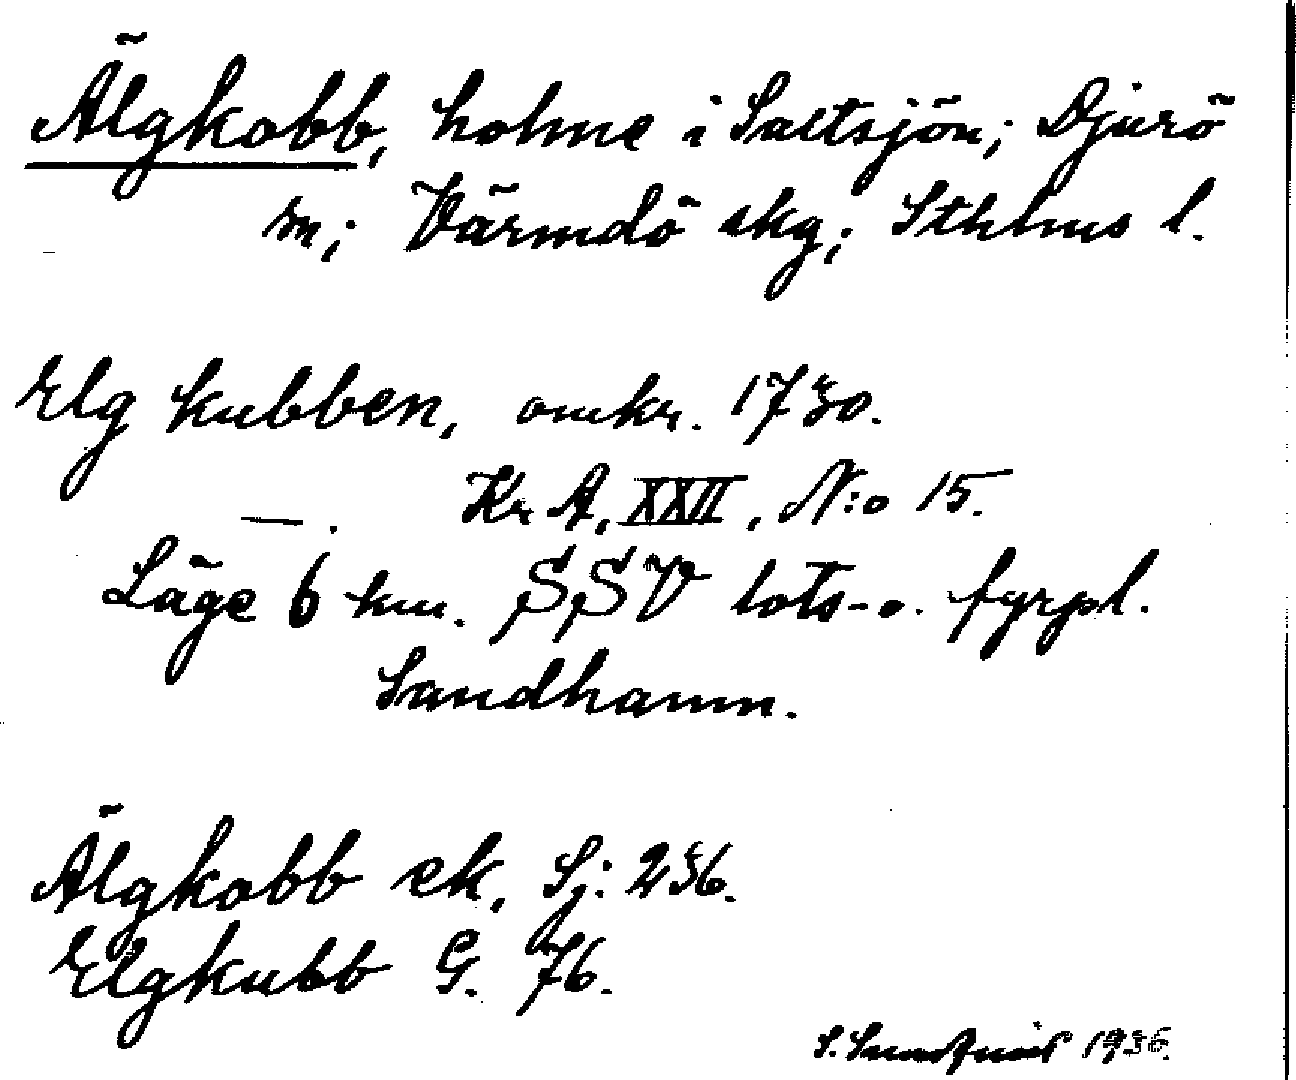 Älgkobb, holme i Saltsjön; Djurö
sn; Värmdö skg; Sthlms l.
Elg kubben, omkr. 1730.
—. Kr A, XXII, N:o 15.
Läge 6 km. SSV lots- o. fyrpl.
Sandhamn.
Älgkobb ek, Sj: 236.
Elgkubb G. 76.
S. 1936.